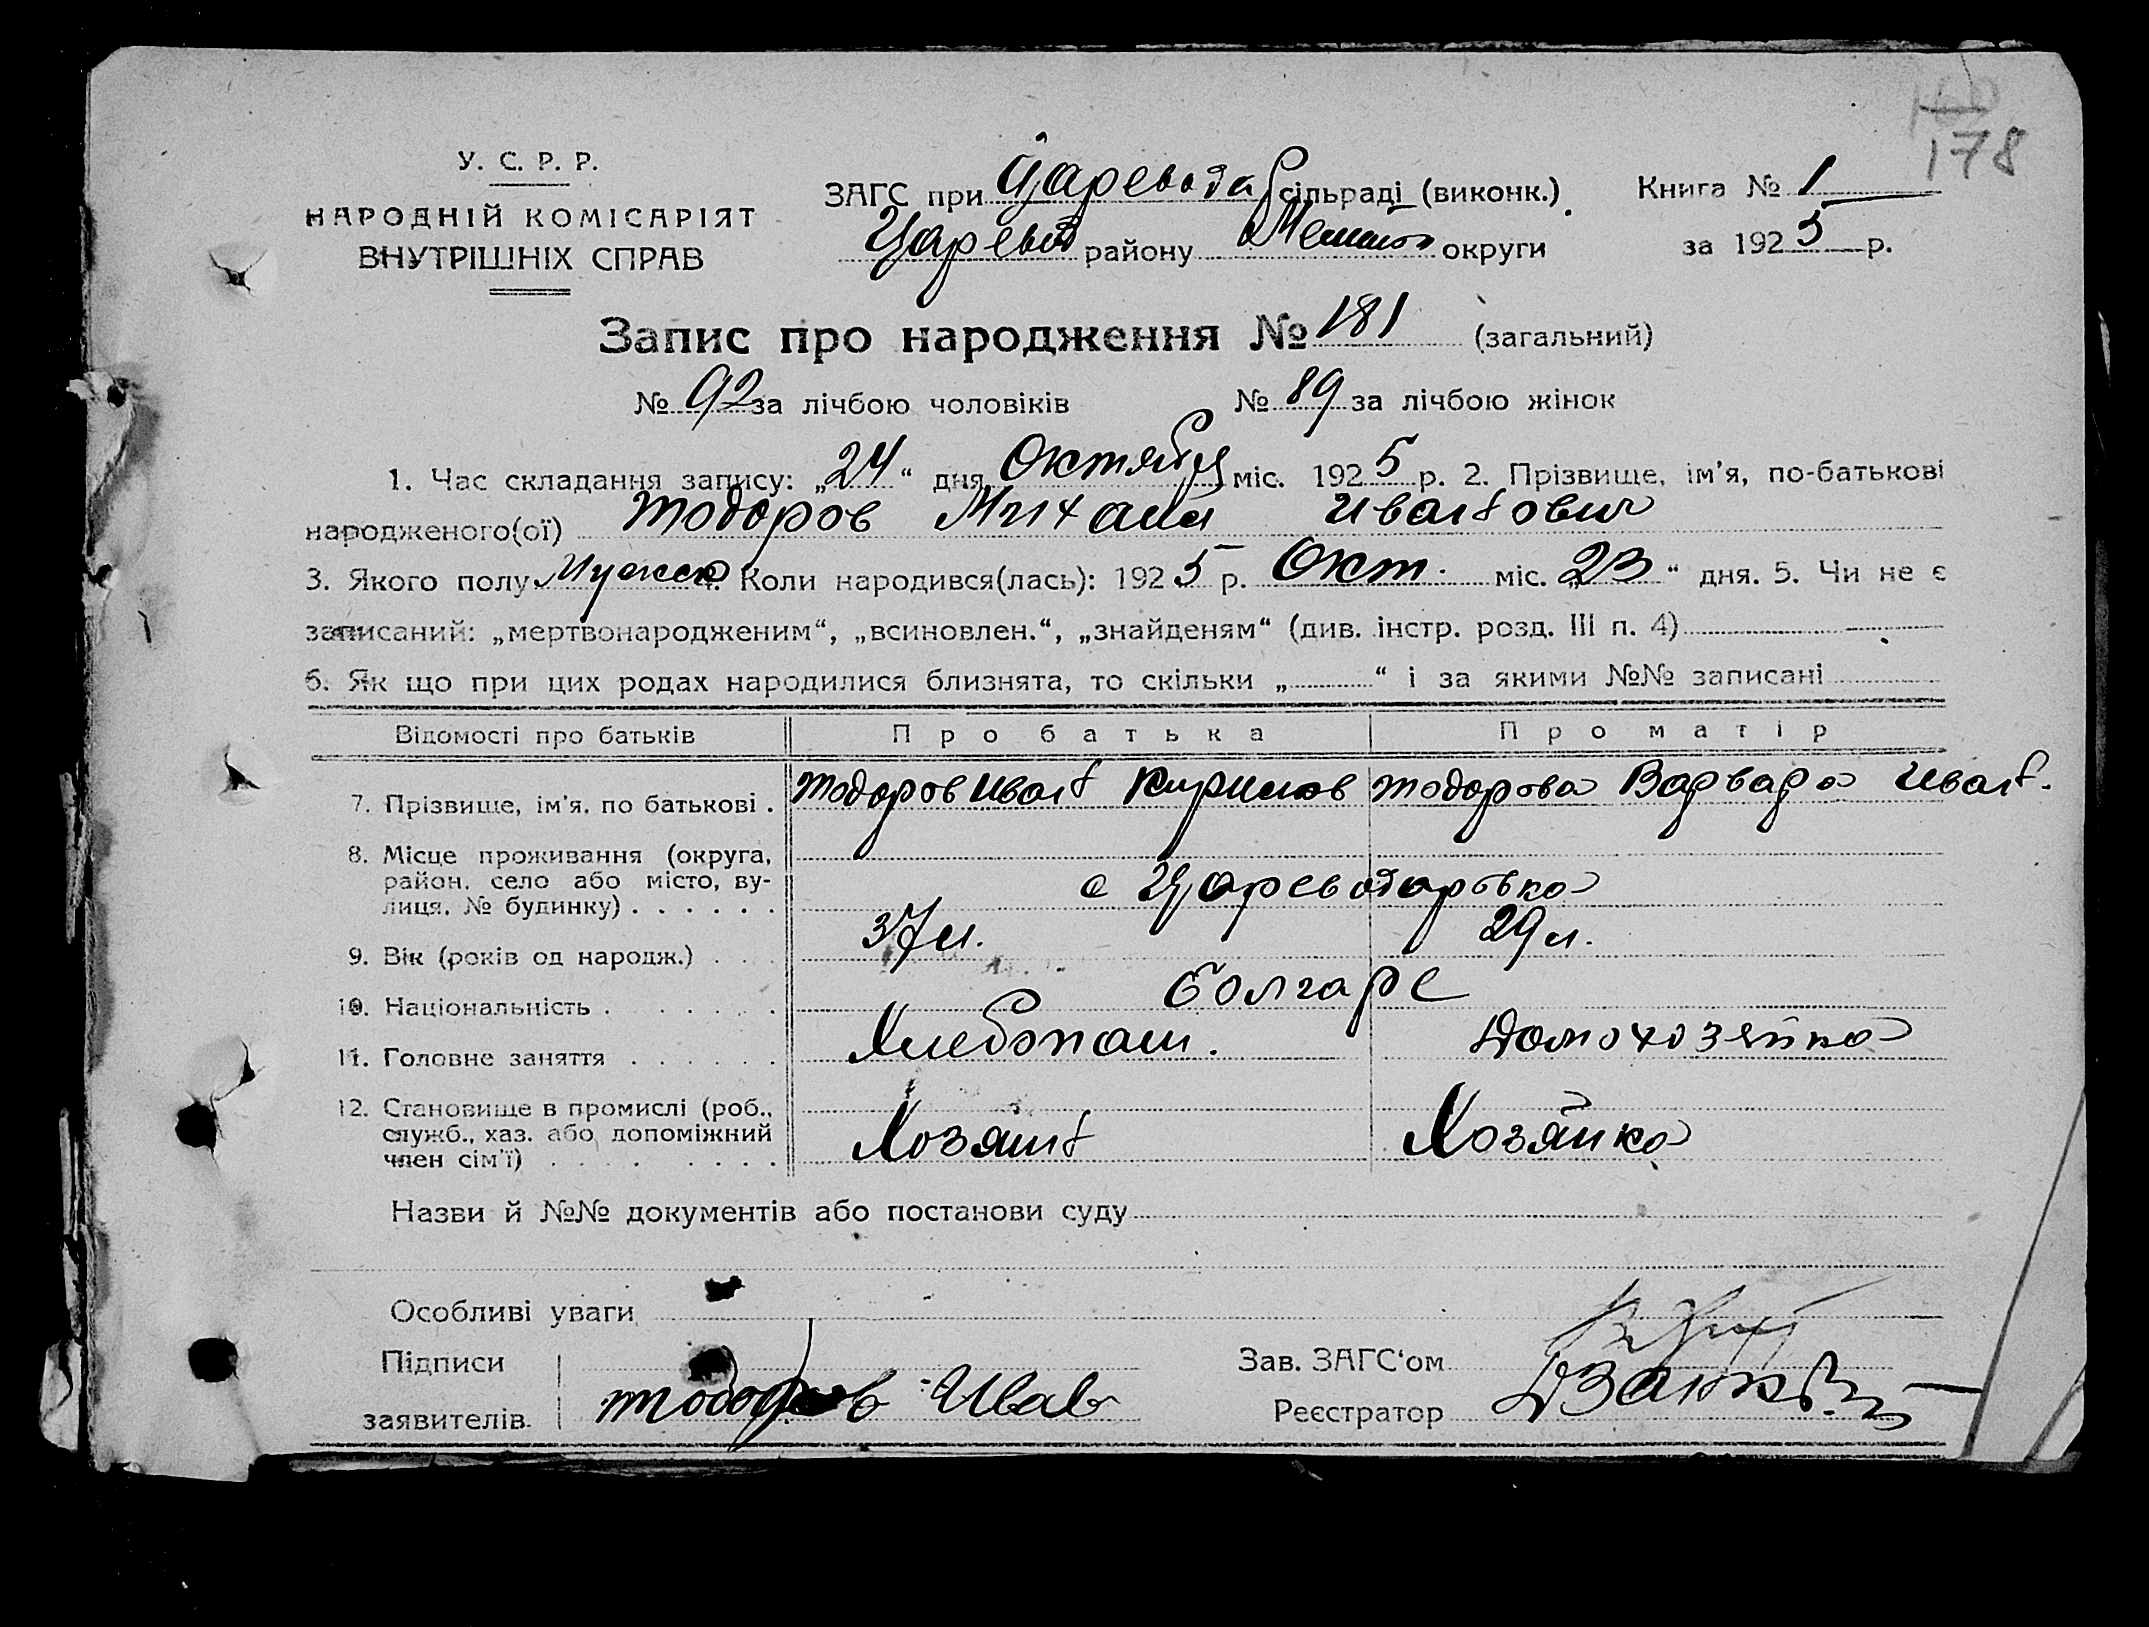 178
У. С. Р. Р.
НАРОДНІЙ КОМІСАРІЯТ
ВНУТРІШНІХ СПРАВ
ЗАГС при Царевода сільраді (виконк.)
Царевод району округи
Книга № 1
за 1925 р.
Запис про народження № 181 (загальний)
№ 92 за лічбою чоловіків № 89 за лічбою жінок
1. Час складання запису: „24“ дня Октября міс. 1925 р. 2. Прізвище, ім'я, по-батькові
народженого(ої) Тодоров Михаил Иванович
3. Якого полу Мужск 4. Коли народився(лась): 1925 р. Окт. міс. „23“ дня. 5. Чи не є
записаний: „мертвонародженим“, „всиновлен.“, „знайденям“ (див. інстр. розд. III п. 4)
6. Як що при цих родах народилися близнята, то скільки „ “ і за якими №№ записані
Відомості про батьків Про батька Про матір
7. Прізвище, ім'я, по батькові . Тодоров Иван Кирилов Тодорова Варвара Иван.
8. Місце проживання (округа,
район, село або місто, ву-
лиця, № будинку) . . . . . . с Цареводаровка
9. Вік (років од народж.) . . . 37 л. 29 л.
10. Національність . . . . . . . Болгаре
11. Головне заняття . . . . . . Хлебопаш. Домохозяйка
12. Становище в промислі (роб.,
служб., хаз. або допоміжний
член сім'ї) . . . . . . . . . Хозяин Хозяйка
Назви й №№ документів або постанови суду
Особливі уваги
Підписи
заявителів. Тодоров Иван
Зав. ЗАГС'ом
Реєстратор